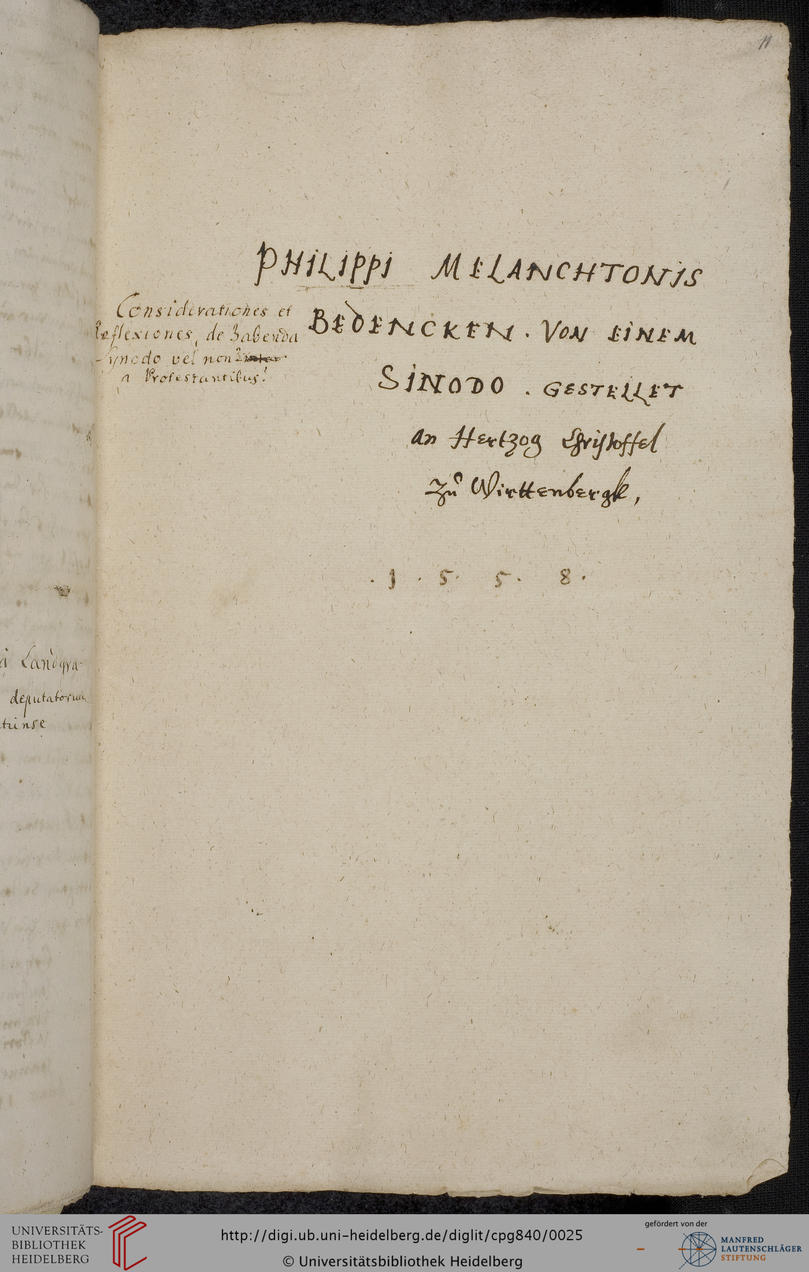 11
PHILIPPI MELANCHTONIS
BEDENCKEN . VON EINEM
SINODO . GESTELLET
an Hertzog Christoffel
zů Wirttenbergk,
. 1 . 5 . 5 . 8 .
Considerationes et
Reflexiones, de habenda
Synodo vel non?
a Protestantibus!
Landgra-
deputatorum
UNIVERSITÄTS-
BIBLIOTHEK
HEIDELBERG
http://digi.ub.uni-heidelberg.de/diglit/cpg840/0025
© Universitätsbibliothek Heidelberg
gefördert von der
MANFRED
LAUTENSCHLÄGER
STIFTUNG